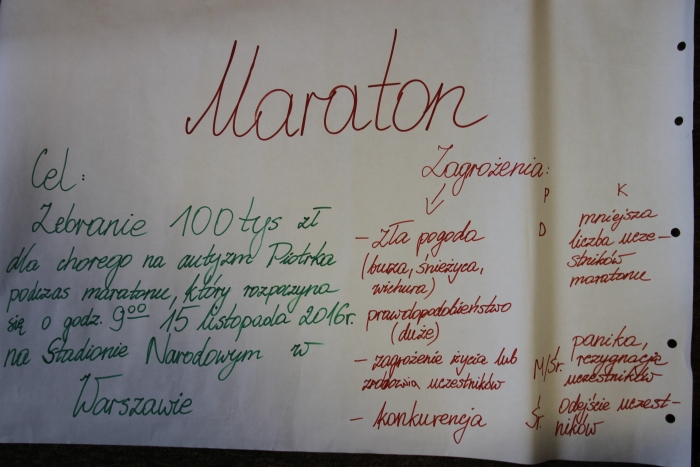 Maraton
Cel:
Zebranie 100 tys zł
dla chorego na autyzm Piotrka
podczas maratonu, który rozpoczyna
się o godz. 9⁰⁰ 15 listopada 2016r.
na Stadionie Narodowym w
Warszawie
Zagrożenia:
P K
– zła pogoda
(burza, śnieżyca,
wichura)
prawdopodobieństwo
(duże)
D
mniejsza
liczba ucze-
stników
maratonu
– zagrożenie życia lub
zdrowia uczestników
M/śr.
panika,
rezygnacja
uczestników
– konkurencja
śr.
odejście uczest-
ników